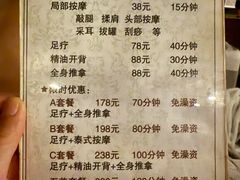 局部按摩 38元 15分钟
敲腿 揉肩 头部按摩
采耳 拔罐 刮痧 等
足疗 78元 40分钟
精油开背 88元 30分钟
全身推拿 88元 40分钟
★限时优惠:
A套餐 178元 70分钟 免澡资
足疗+全身推拿
B套餐 198元 80分钟 免澡资
足疗+泰式按摩
C套餐 238元 100分钟 免澡资
足疗+精油开背+全身推拿